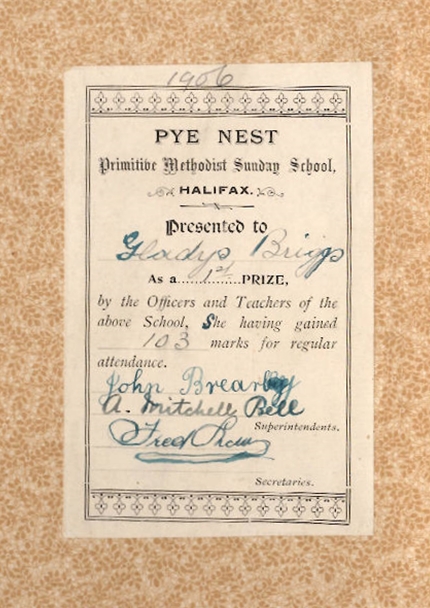 1906
PYE NEST
Primitive Methodist Sunday School,
HALIFAX.
Presented to
Gladys Briggs
As a 1st PRIZE,
by the Officers and Teachers of the
above School, She having gained
103 marks for regular
attendance.
John Brearley
A. Mitchell Bell
Superintendents.
Fred
Secretaries.